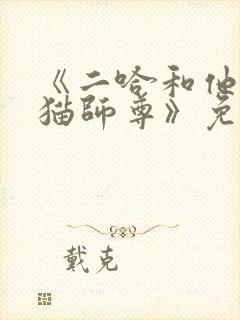 《二哈和他
猫師尊》免
戴克